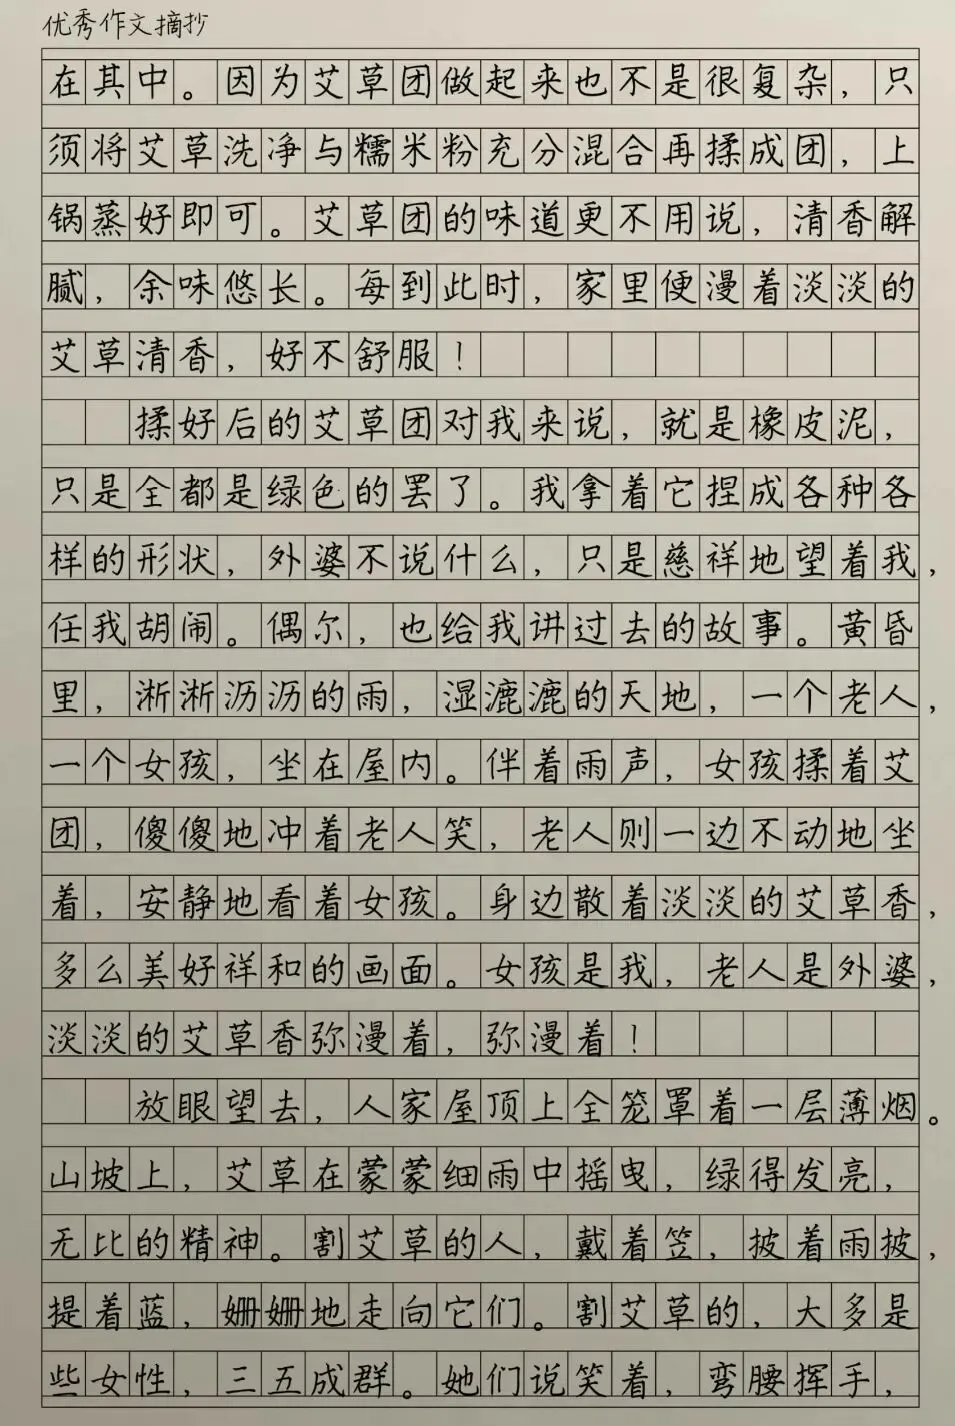 优秀作文摘抄
在其中。因为艾草团做起来也不是很复杂，只
须将艾草洗净与糯米粉充分混合再揉成团，上
锅蒸好即可。艾草团的味道更不用说，清香解
腻，余味悠长。每到此时，家里便漫着淡淡的
艾草清香，好不舒服！
揉好后的艾草团对我来说，就是橡皮泥，
只是全都是绿色的罢了。我拿着它捏成各种各
样的形状，外婆不说什么，只是慈祥地望着我，
任我胡闹。偶尔，也给我讲过去的故事。黄昏
里，淅淅沥沥的雨，湿漉漉的天地，一个老人，
一个女孩，坐在屋内。伴着雨声，女孩揉着艾
团，傻傻地冲着老人笑，老人则一边不动地坐
着，安静地看着女孩。身边散着淡淡的艾草香，
多么美好祥和的画面。女孩是我，老人是外婆，
淡淡的艾草香弥漫着，弥漫着！
放眼望去，人家屋顶上全笼罩着一层薄烟。
山坡上，艾草在蒙蒙细雨中摇曳，绿得发亮，
无比的精神。割艾草的人，戴着笠，披着雨披，
提着蓝，姗姗地走向它们。割艾草的，大多是
些女性，三五成群。她们说笑着，弯腰挥手，